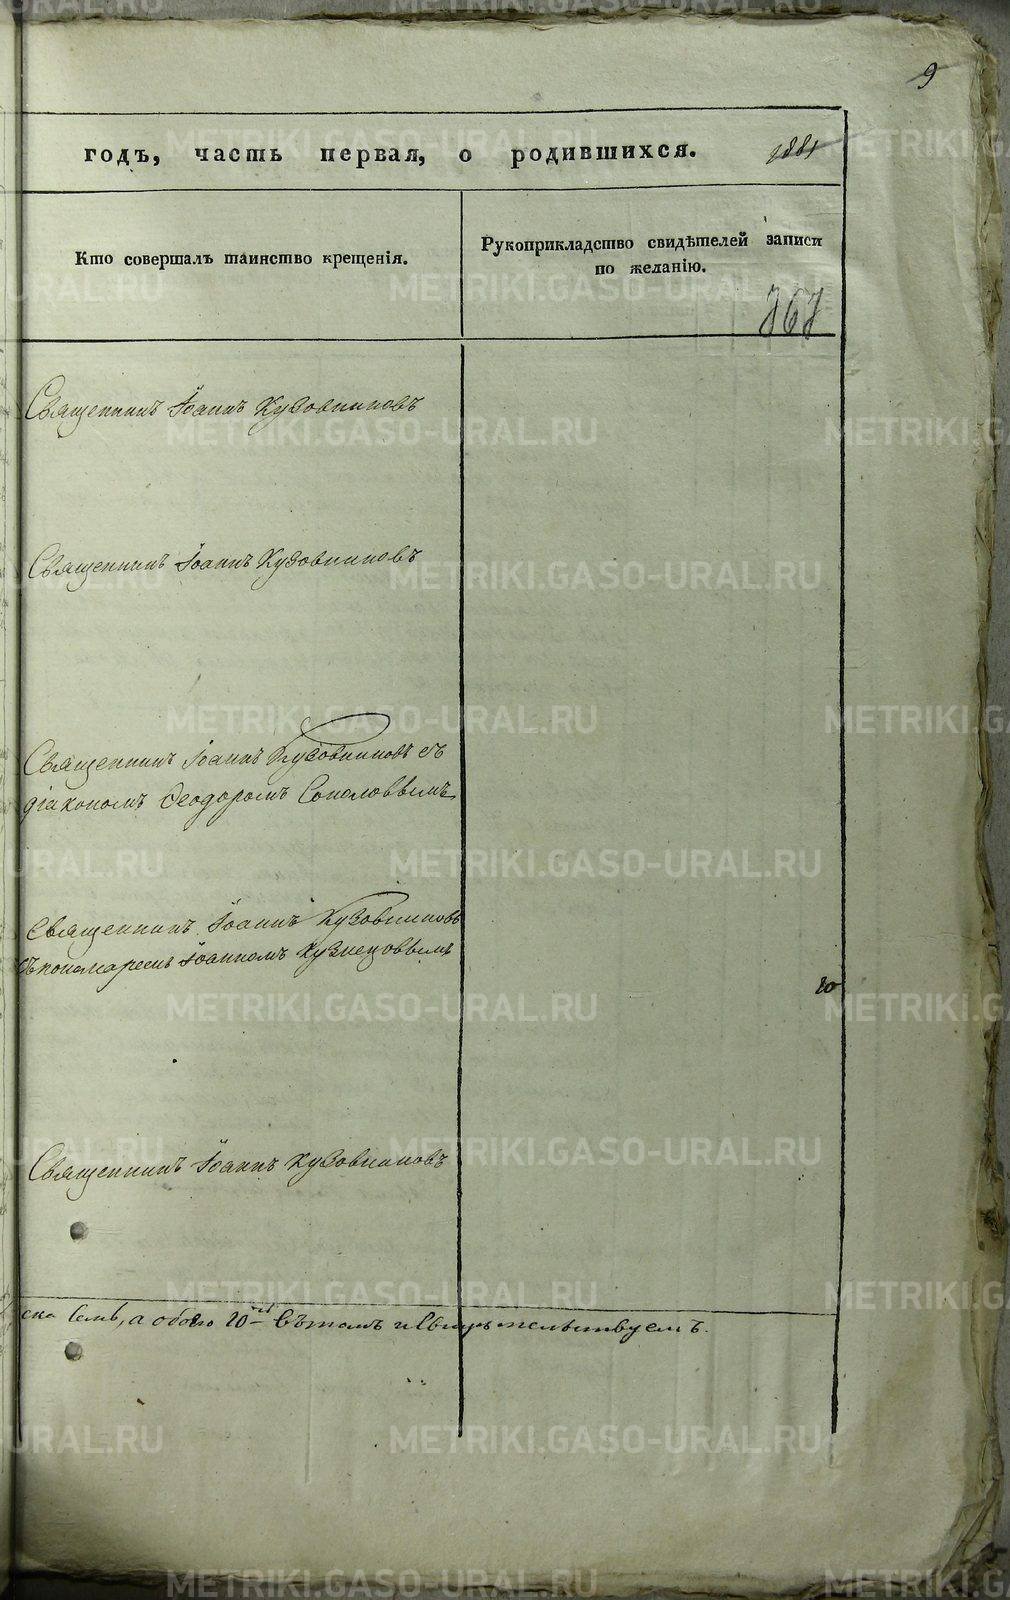 9
годъ, часть первая, о родившихся. 1881
Кто совершалъ таинство крещенія.
Рукоприкладство свидѣтелей записи
по желанію.
Священникъ Іоаннъ Кузовниковъ
Священникъ Іоаннъ Кузовниковъ
Священникъ Іоаннъ Кузовниковъ съ
діакономъ Ѳеодоромъ Соколовымъ
Священникъ Іоаннъ Кузовниковъ
съ пономаремъ Іоанномъ Кузнецовымъ
20
Священникъ Іоаннъ Кузовниковъ
семь, а обоего въ томъ и свидѣтельствуемъ.
METRIKI.GASO-URAL.RU